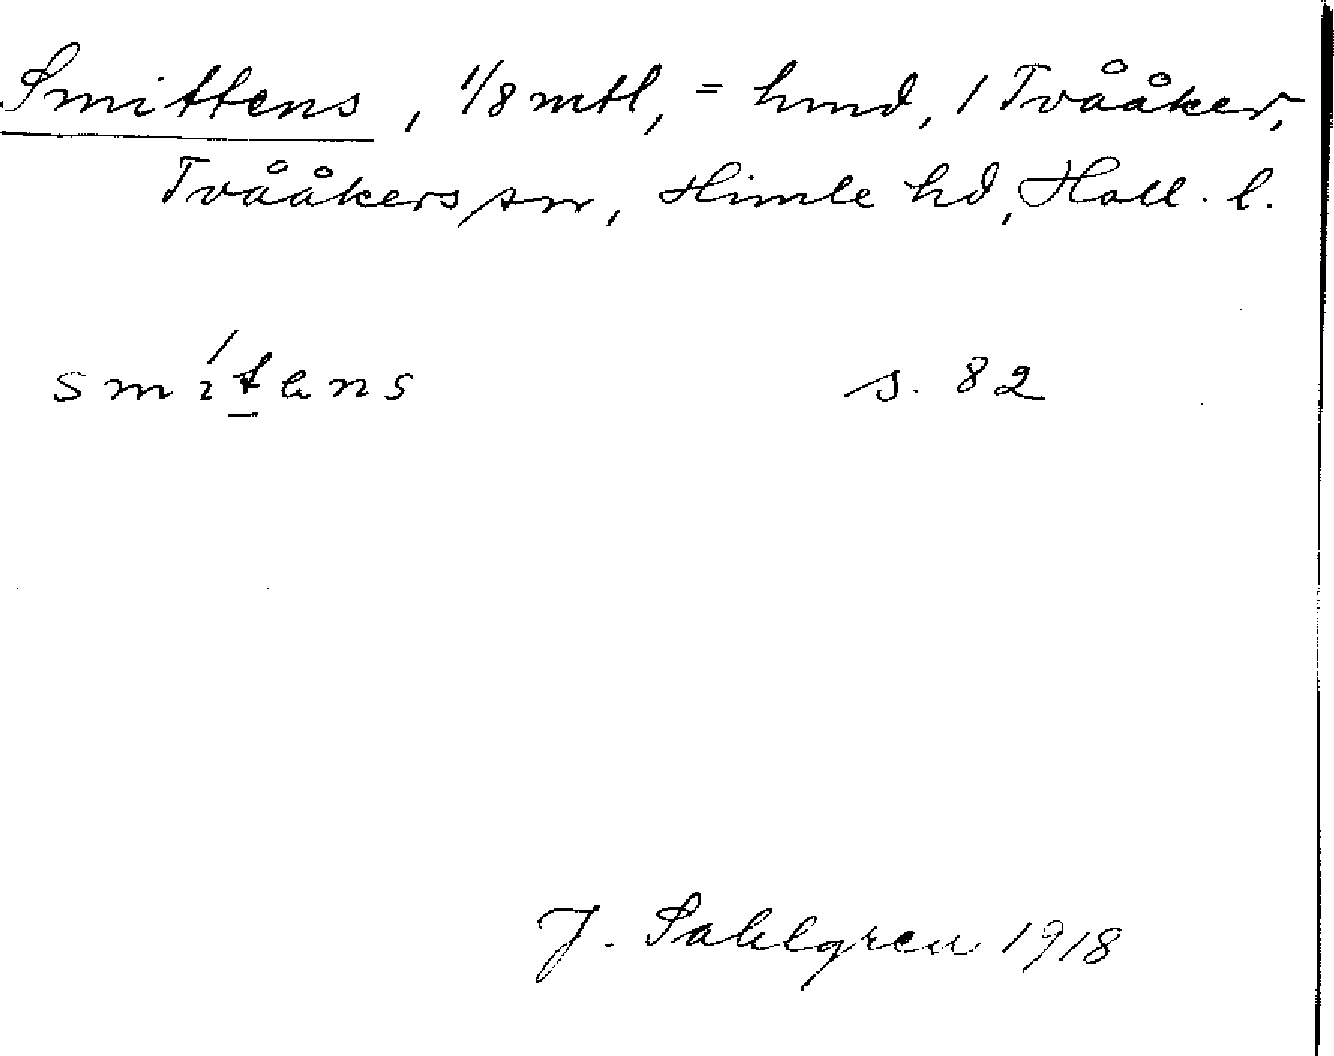 Smittens, 1/8 mtl, = hmd, 1 Tvååker,
Tvååkers sn, Himle hd, Hall. l.
smítens s. 82
J. Sahlgren 1918